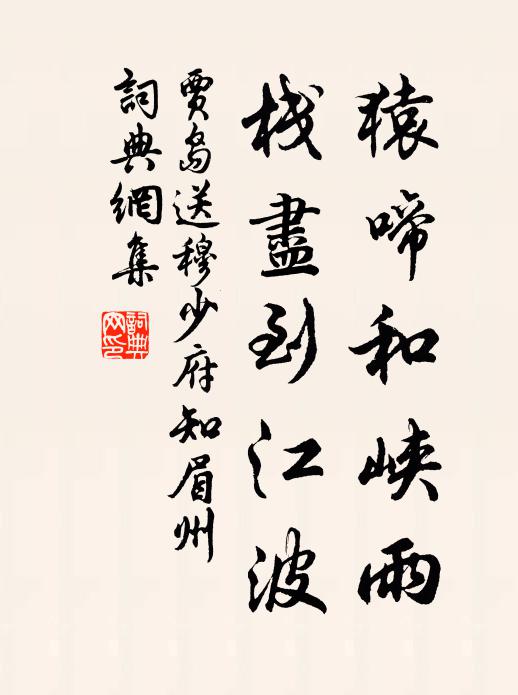 猿啼和峡雨
棧盡到江波
賈島送穆少府知眉州
詞典網集
詞典网印